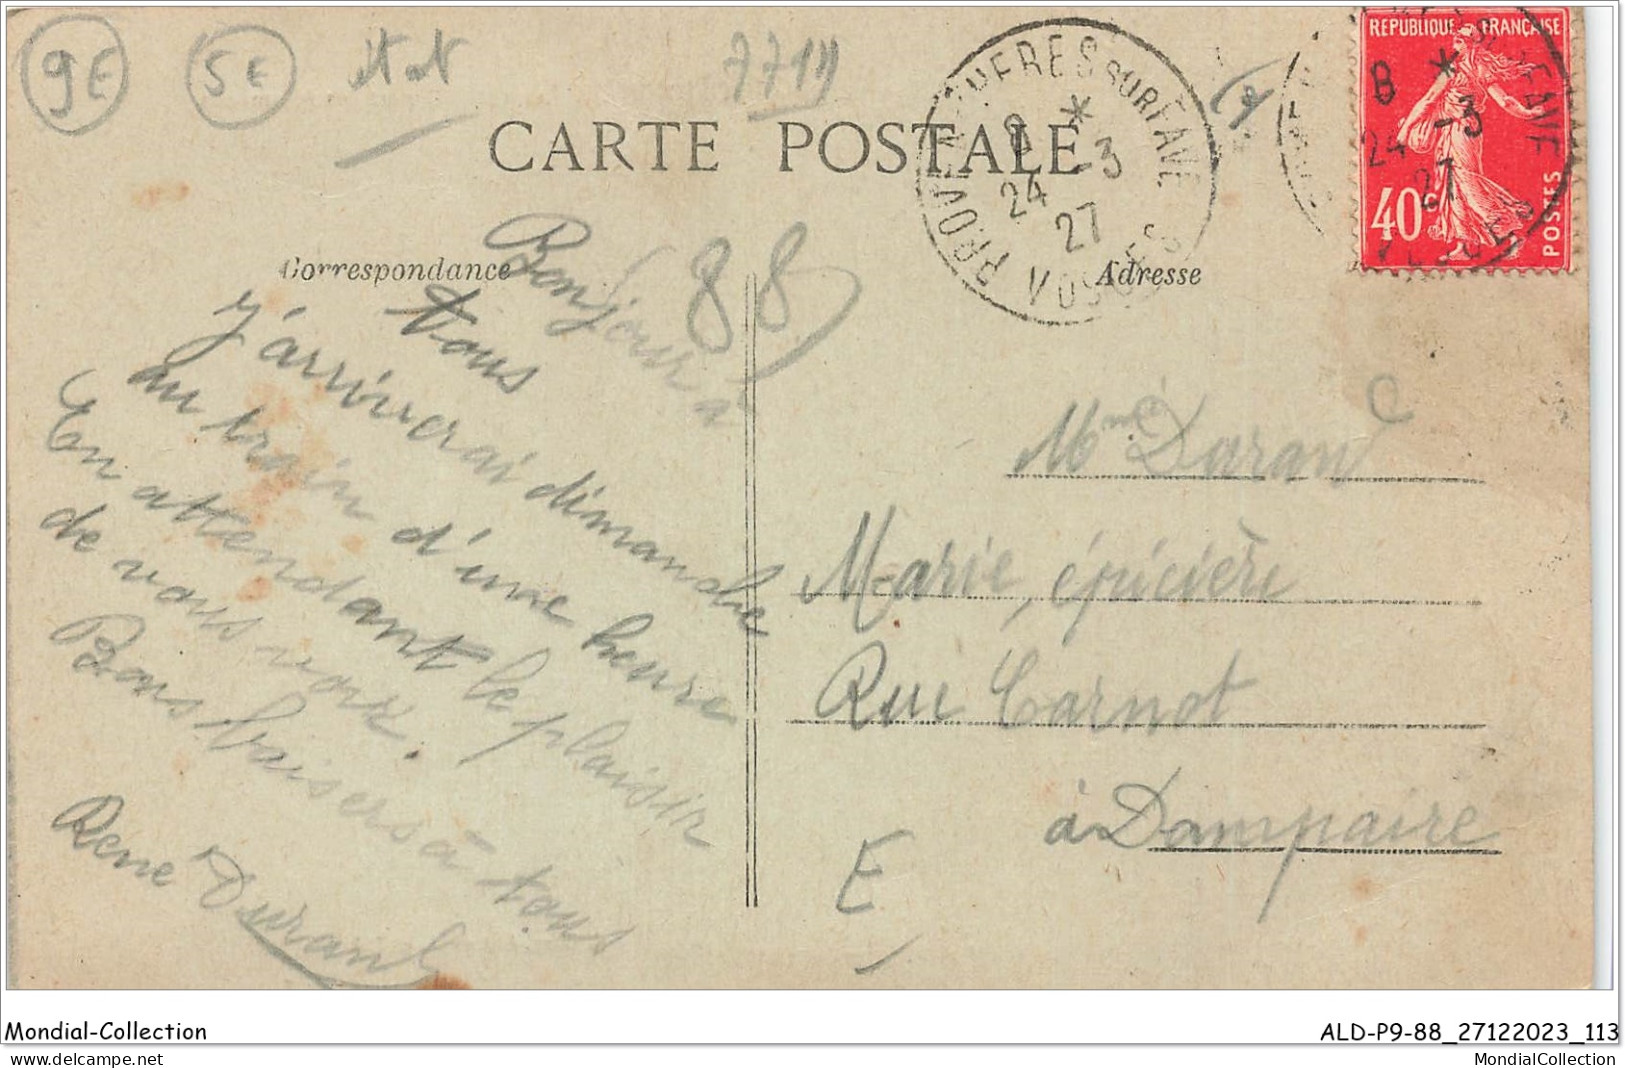 9E 5E
7719
CARTE POSTALE
PROVENCHERES SUR FAVE
VOSGES
8 *
24 -3
27
REPUBLIQUE FRANÇAISE
8 *
24 -3
27
40c
POSTES
Correspondance
Adresse
88)
Bonjour à
tous
J'arriverai dimanche
au train d'une heure
En attendant le plaisir
de vous voir.
Bons baisers à tous
René Durand
Mme Durand
Marie, épicière
Rue Carnot
à Dompaire
E
Mondial-Collection
ALD-P9-88_27122023_113
MondialCollection